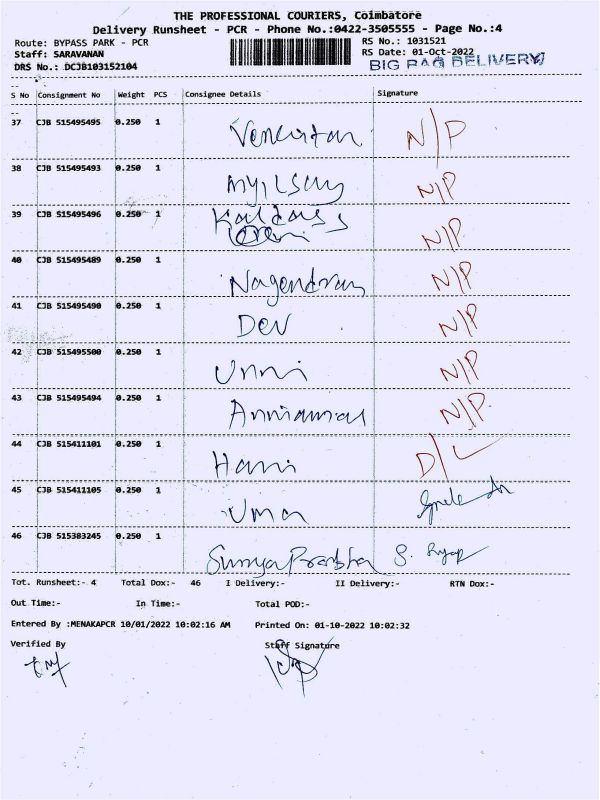 THE PROFESSIONAL COURIERS, Coimbatore
Delivery Runsheet - PCR - Phone No.:0422-3505555 - Page No.:4
Route: BYPASS PARK - PCR
RS No.: 1031521
Staff: SARAVANAN
RS Date: 01-Oct-2022
DRS No.: DCJB103152104
BIG BAG DELIVERY
S No Consignment No Weight PCS Consignee Details Signature
37 CJB 515495495 0.250 1 N/P
38 CJB 515495493 0.250 1 N/P
39 CJB 515495496 0.250 1 N/P
40 CJB 515495489 0.250 1 Nagendran N/P
41 CJB 515495490 0.250 1 Dev N/P
42 CJB 515495500 0.250 1 Unni N/P
43 CJB 515495494 0.250 1 N/P
44 CJB 515411101 0.250 1 D/L
45 CJB 515411105 0.250 1 Uma
46 CJB 515383245 0.250 1 Surya Prabha
Tot. Runsheet:- 4 Total Dox:- 46 I Delivery:- II Delivery:- RTN Dox:-
Out Time:- In Time:- Total POD:-
Entered By :MENAKAPCR 10/01/2022 10:02:16 AM Printed On: 01-10-2022 10:02:32
Verified By Staff Signature